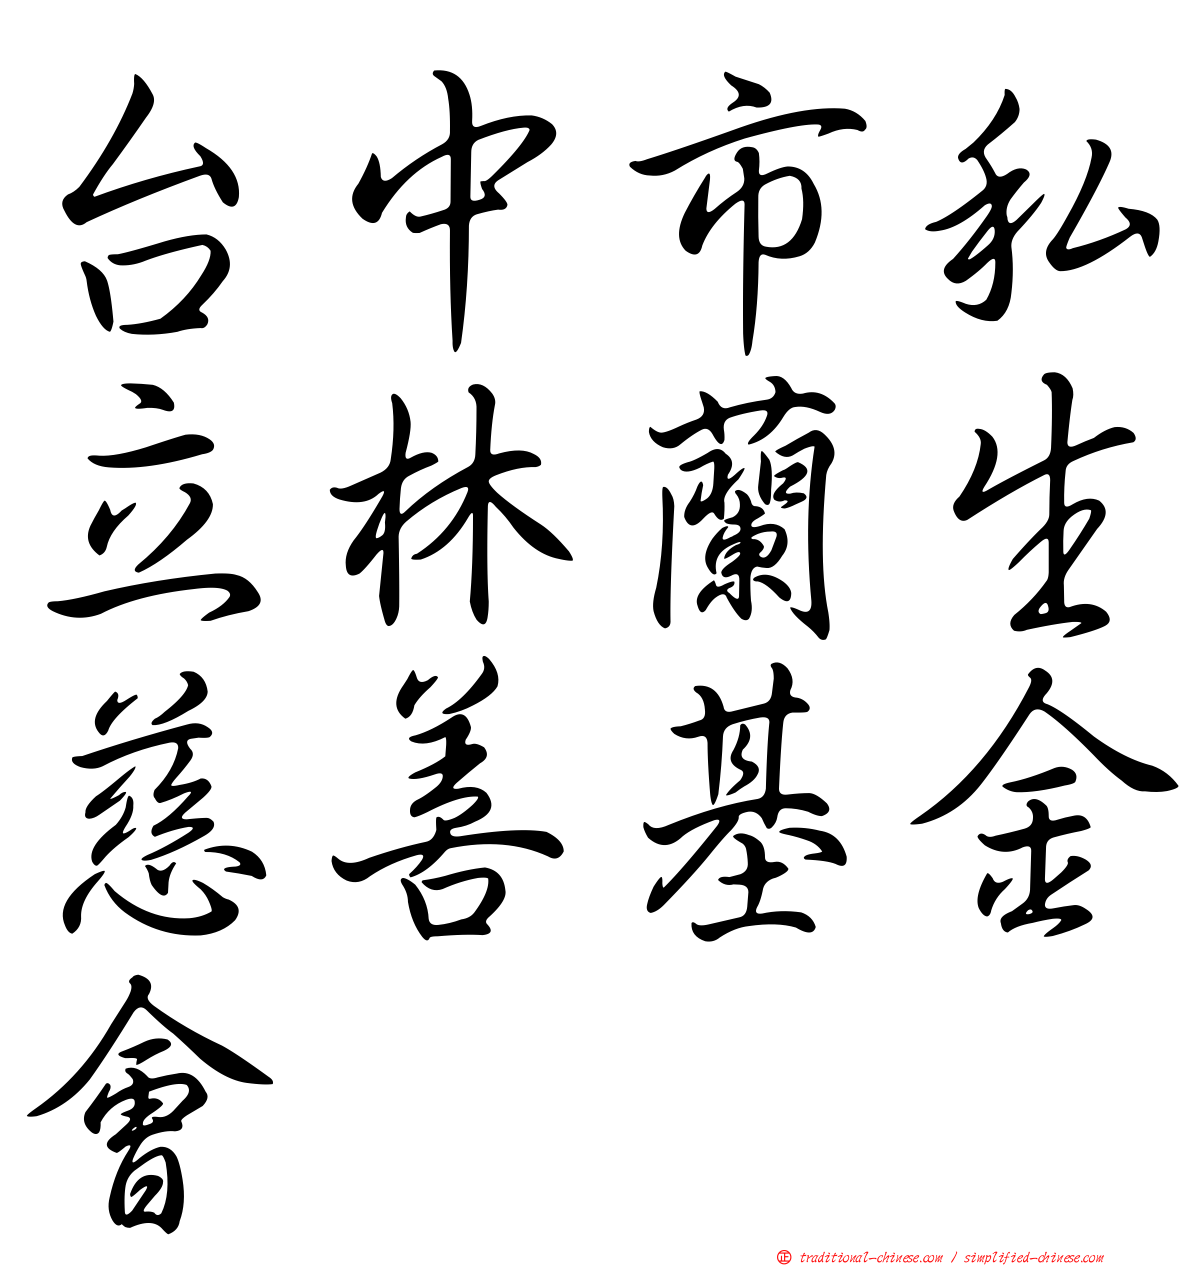 台中市私
立林蘭生
慈善基金
會
正 traditional-chinese.com / simplified-chinese.com